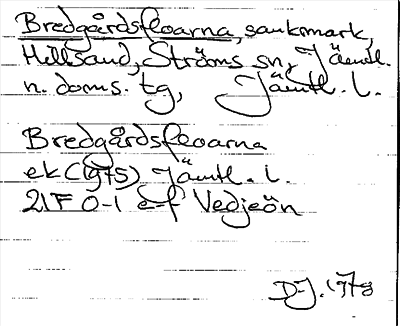 Bredgårdsfloarna, sankmark,
Hillsand, Ströms sn, Jämtl.
n. doms. tg, Jämtl. l.
Bredgårdsfloarna
ek (1975) Jämtl. l.
21F 0-1 e-f Vedjeön
D-J. 1978